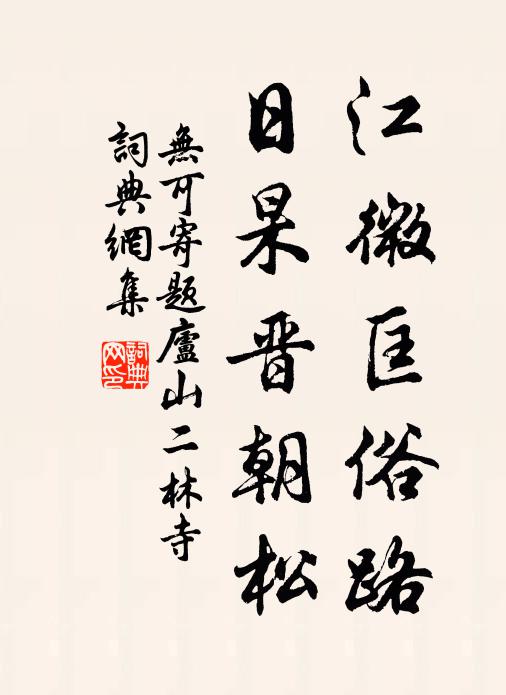 江微匡俗路
日杲晋朝松
無可寄題廬山二林寺
詞典網集
詞典
网印